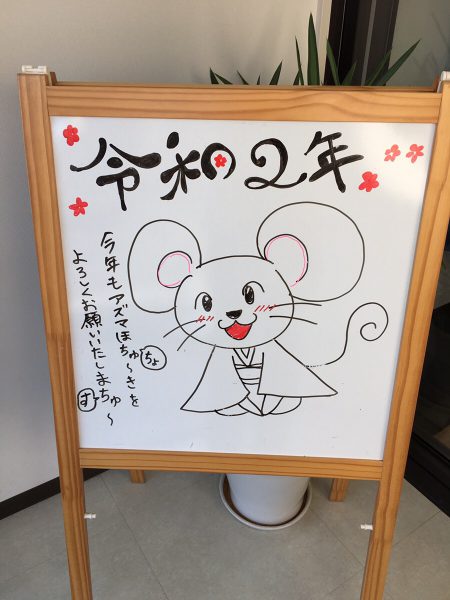 令和2年
今年もアズマほちゅ〜きを
ちょ
よろしくお願いいたしまちゅ〜
す